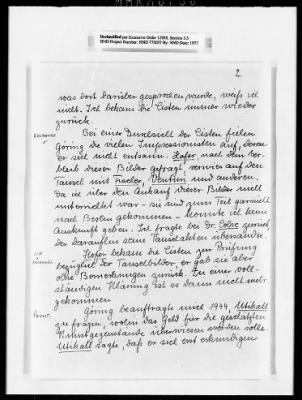 Declassified per Executive Order 12958, Section 3.5
NND Project Number: NND 775057 By: NND Date: 1977
2
was dort darüber gesprochen wurde, weiß ich
nicht. Ich bekam die Listen immer wieder
zurück.
Bei einer Durchsicht der Listen fielen
Göring die vielen Impressionisten auf, deren
er sich nicht entsann. Hofer, nach dem Ver-
bleib dieser Bilder gefragt, verwies auf den
Tausch mit Fischer, Wendland und anderen.
Da ich über den Ankauf dieser Bilder nicht
unterrichtet war - sie sind zum Teil garnicht
nach Berlin gekommen - konnte ich keine
Auskunft geben. Ich fragte bei Dr. Lohse zurück,
der daraufhin seine Tauschakten übersandte.
Hofer bekam die Listen zur Prüfung
bezüglich der Tauschbilder, er gab sie aber
ohne Bemerkungen zurück. Zu einer voll-
ständigen Klärung ist es dann nicht mehr
gekommen.
Göring beauftragte mich 1944 Utikal
zu fragen, wohin das Geld für die geschätzten
Kunstgegenstände überwiesen werden solle.
Utikal sagte, daß er sich erst erkundigen